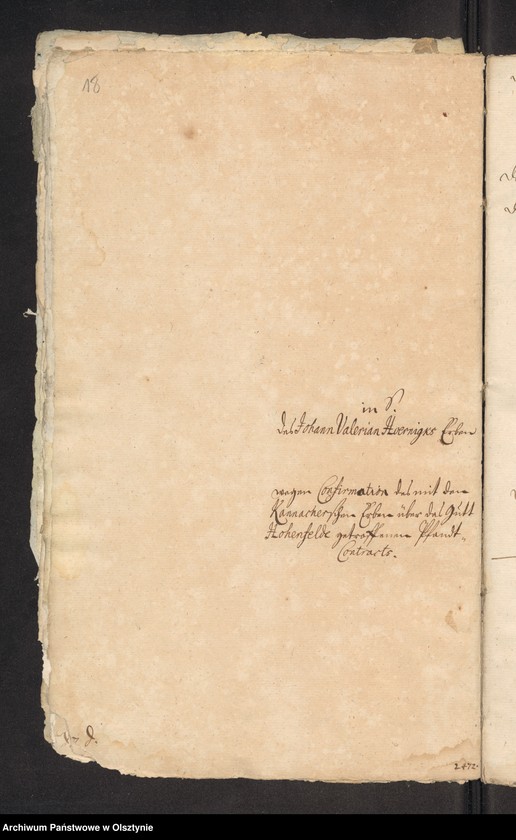 18
in S.
des Johann Valerian Hoernigks Erben
wegen Confirmation des mit dem
Kannacherschen Erben über das Gutt
Hohenfelde getroffenen Pfandt-
Contracts.
2472
Archiwum Państwowe w Olsztynie